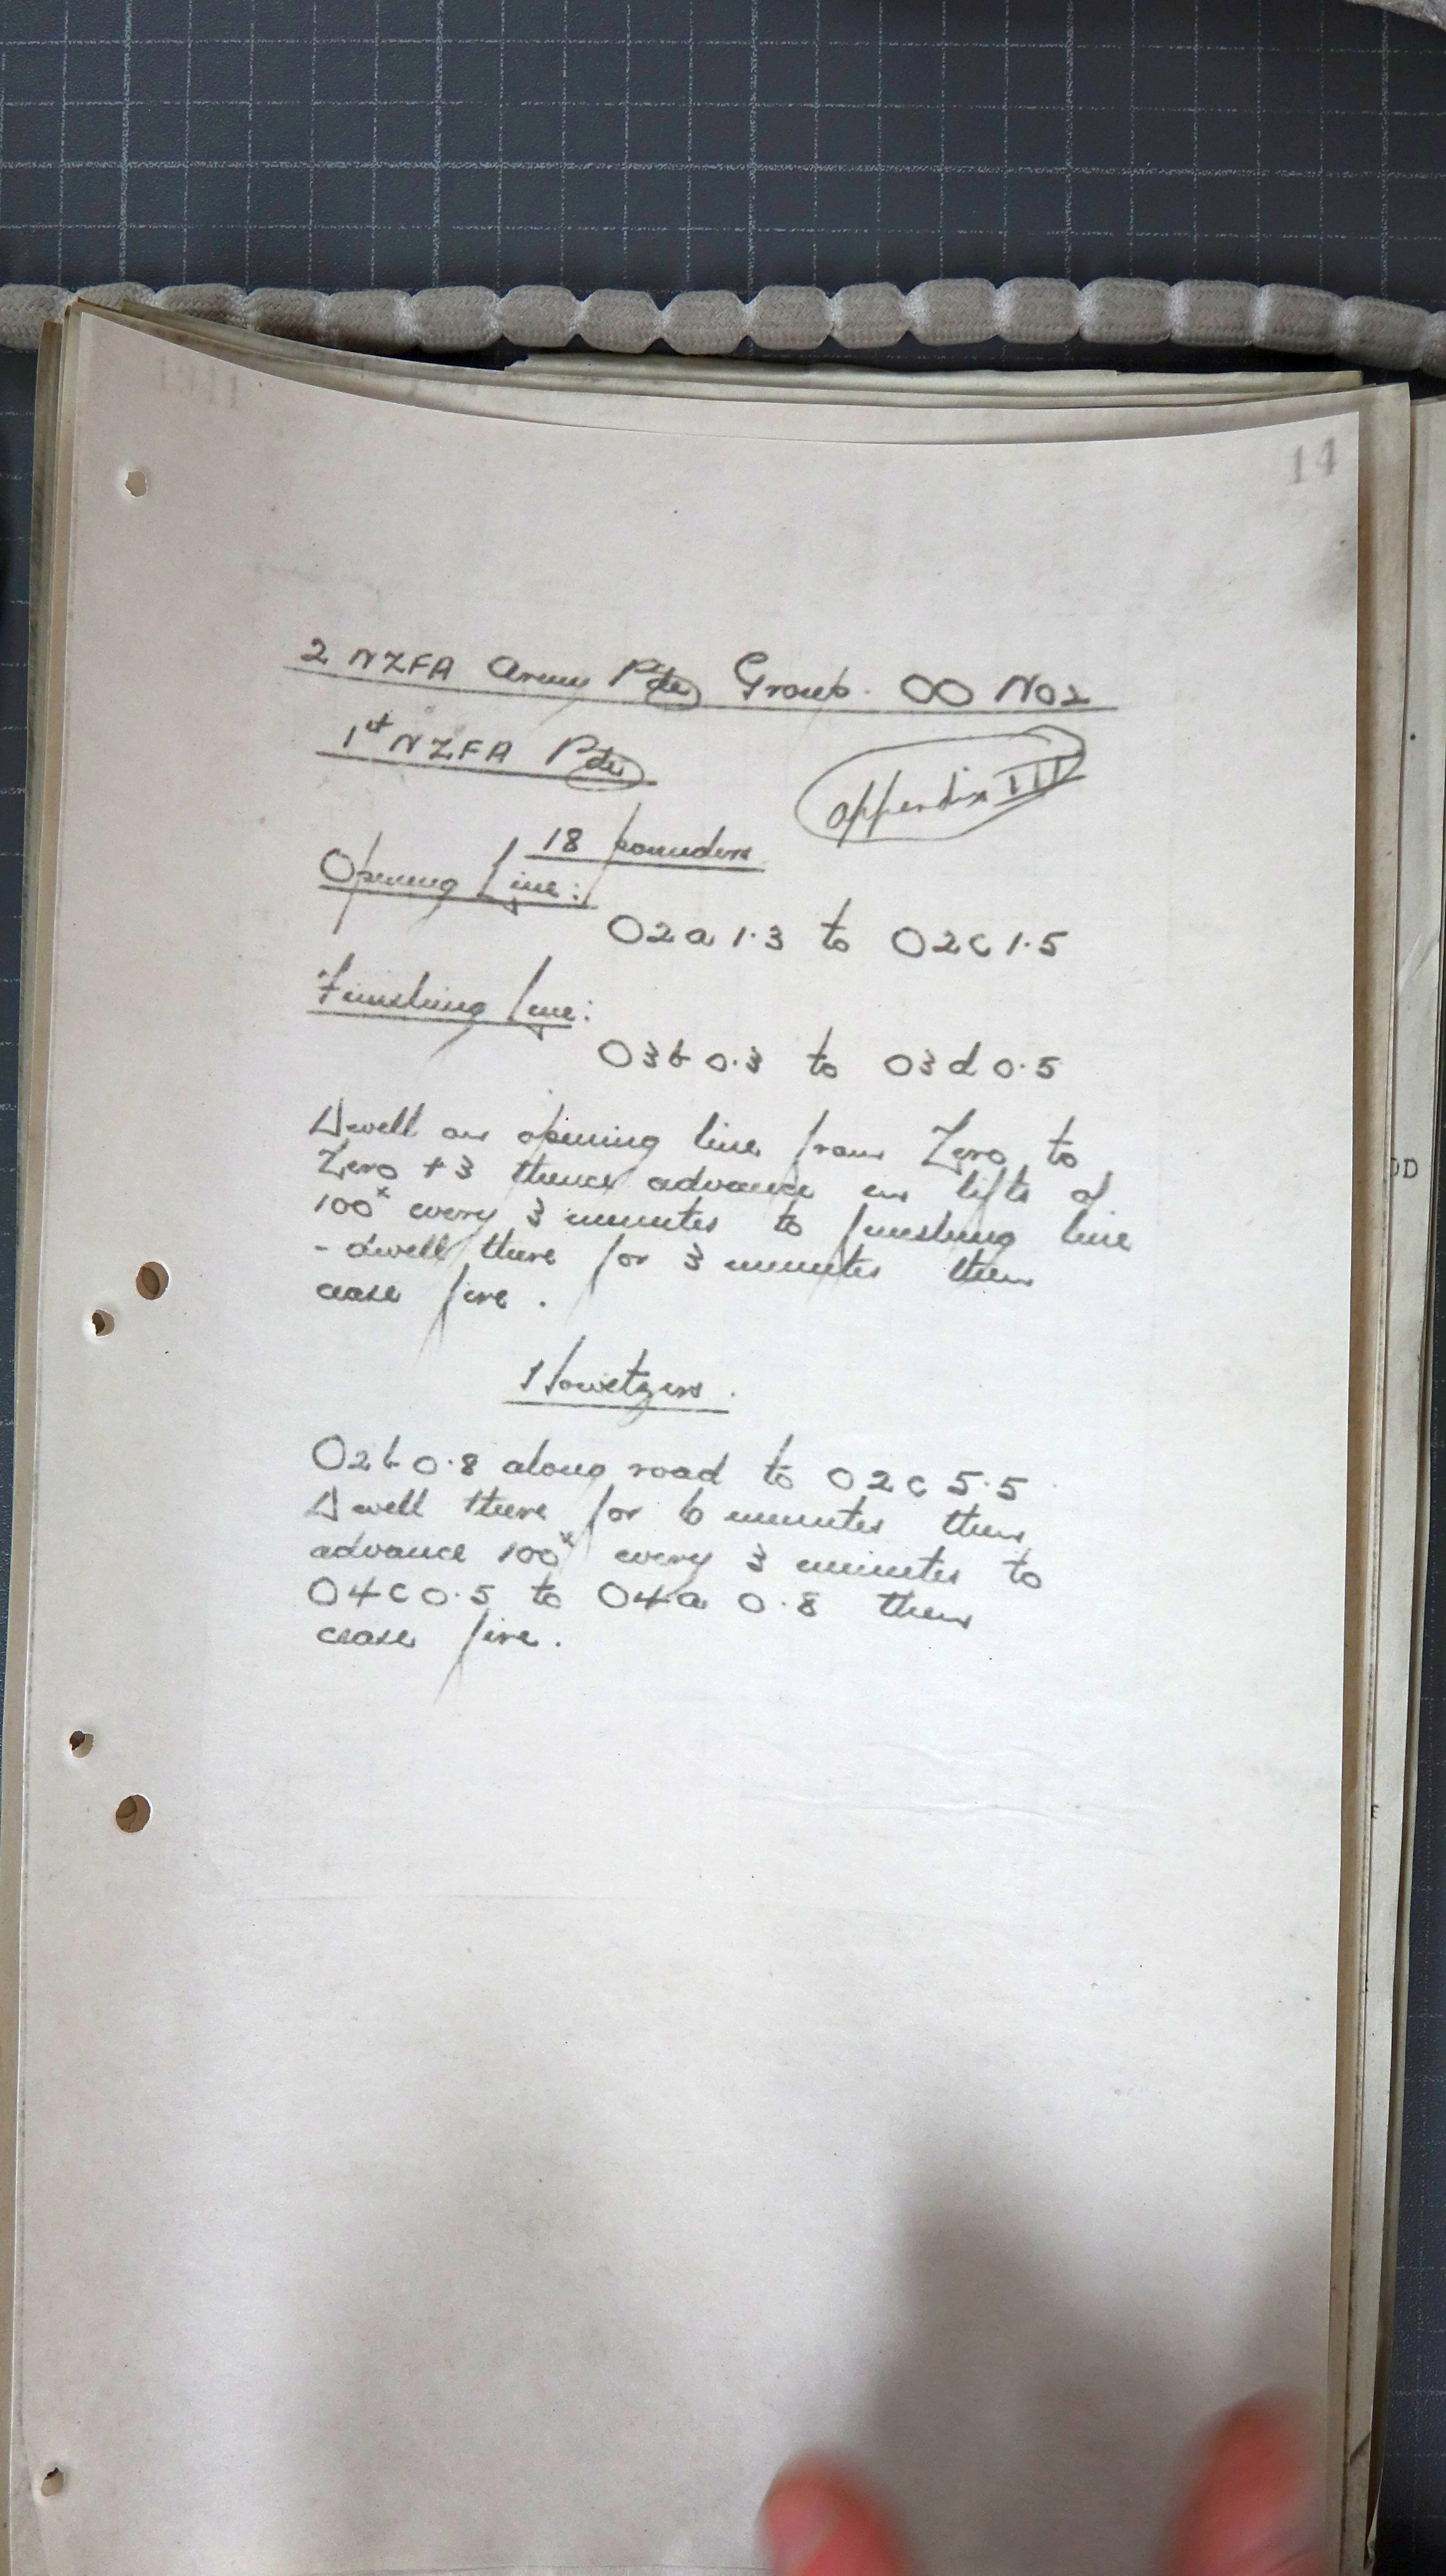 14
2 NZFA Army Bde Group. OO No2
1st NZFA Bde
Appendix III
18 pounders
Opening Line:
O2a 1.3 to O2c 1.5
Finishing line:
O3b 0.3 to O3d 0.5
Dwell on opening line from Zero to
Zero + 3 thence advance in lifts of
100x every 3 minutes to finishing line
- dwell there for 3 minutes then
cease fire.
Howitzers.
O2b 0.8 along road to O2c 5.5
Dwell there for 6 minutes then
advance 100x every 3 minutes to
O4c 0.5 to O4a 0.8 then
cease fire.